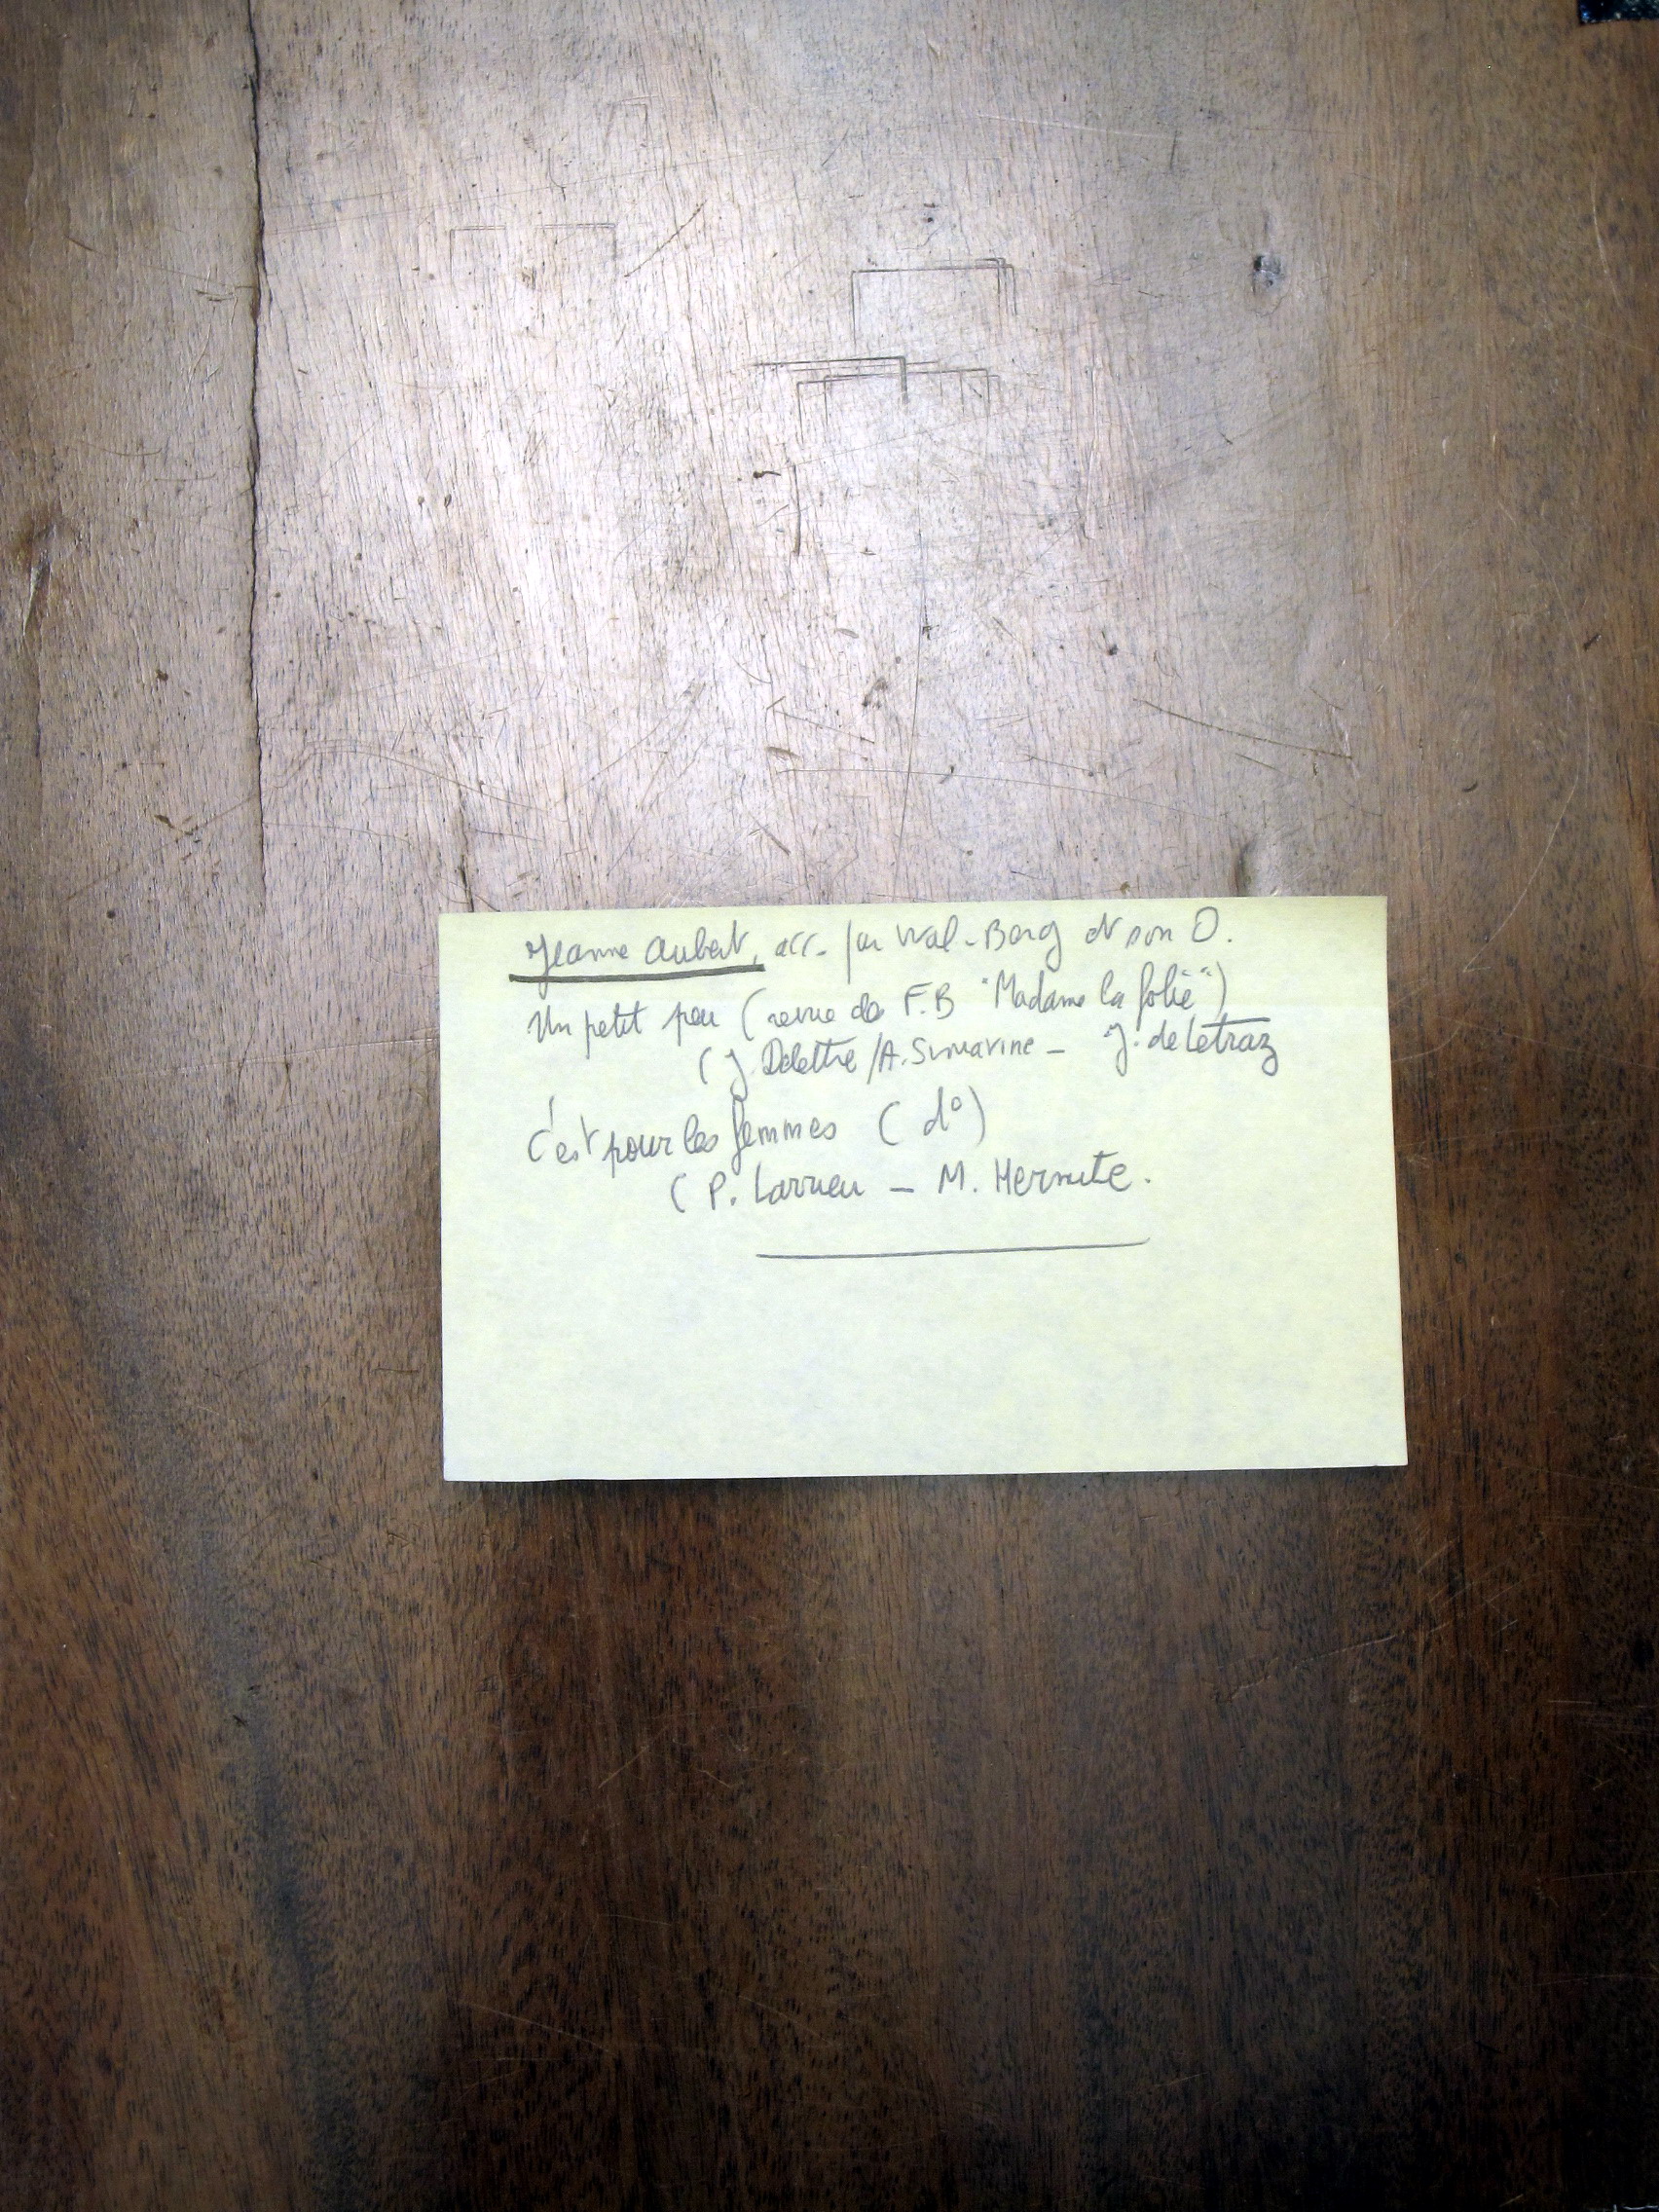 Jeanne Aubert, acc. par Wal-Berg et son O.
Un petit peu (revue de F.B "Madame la folie")
(J. Delettre/A. Simavine - J. de Letraz
C'est pour les femmes (do)
(P. Larrieu - M. Hermite.